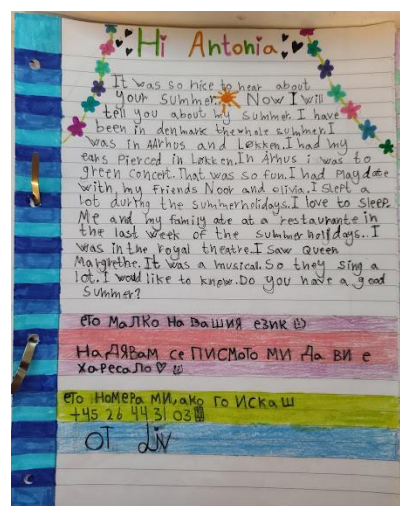 Hi Antonia
It was so nice to hear about
your summer. Now I will
tell you about my summer. I have
been in denmark the whole summer. I
was in AArhus and Løkken. I had my
ears Pierced in Løkken. In Århus i was to
green concert. That was so fun. I had Playdate
with my friends Noor and olivia. I slept a
lot during the summerholidays. I love to sleep.
Me and my family ate at a restaurante in
the last week of the summerholidays. I
was in the royal theatre. I saw Queen
Margrethe. It was a musical. So they sing a
lot. I would like to know. Do you have a good
summer?
ето малко на вашия език
Надявам се писмото ми да ви е
харесало
ето номера ми, ако го искаш
+45 26 44 31 03
от Liv